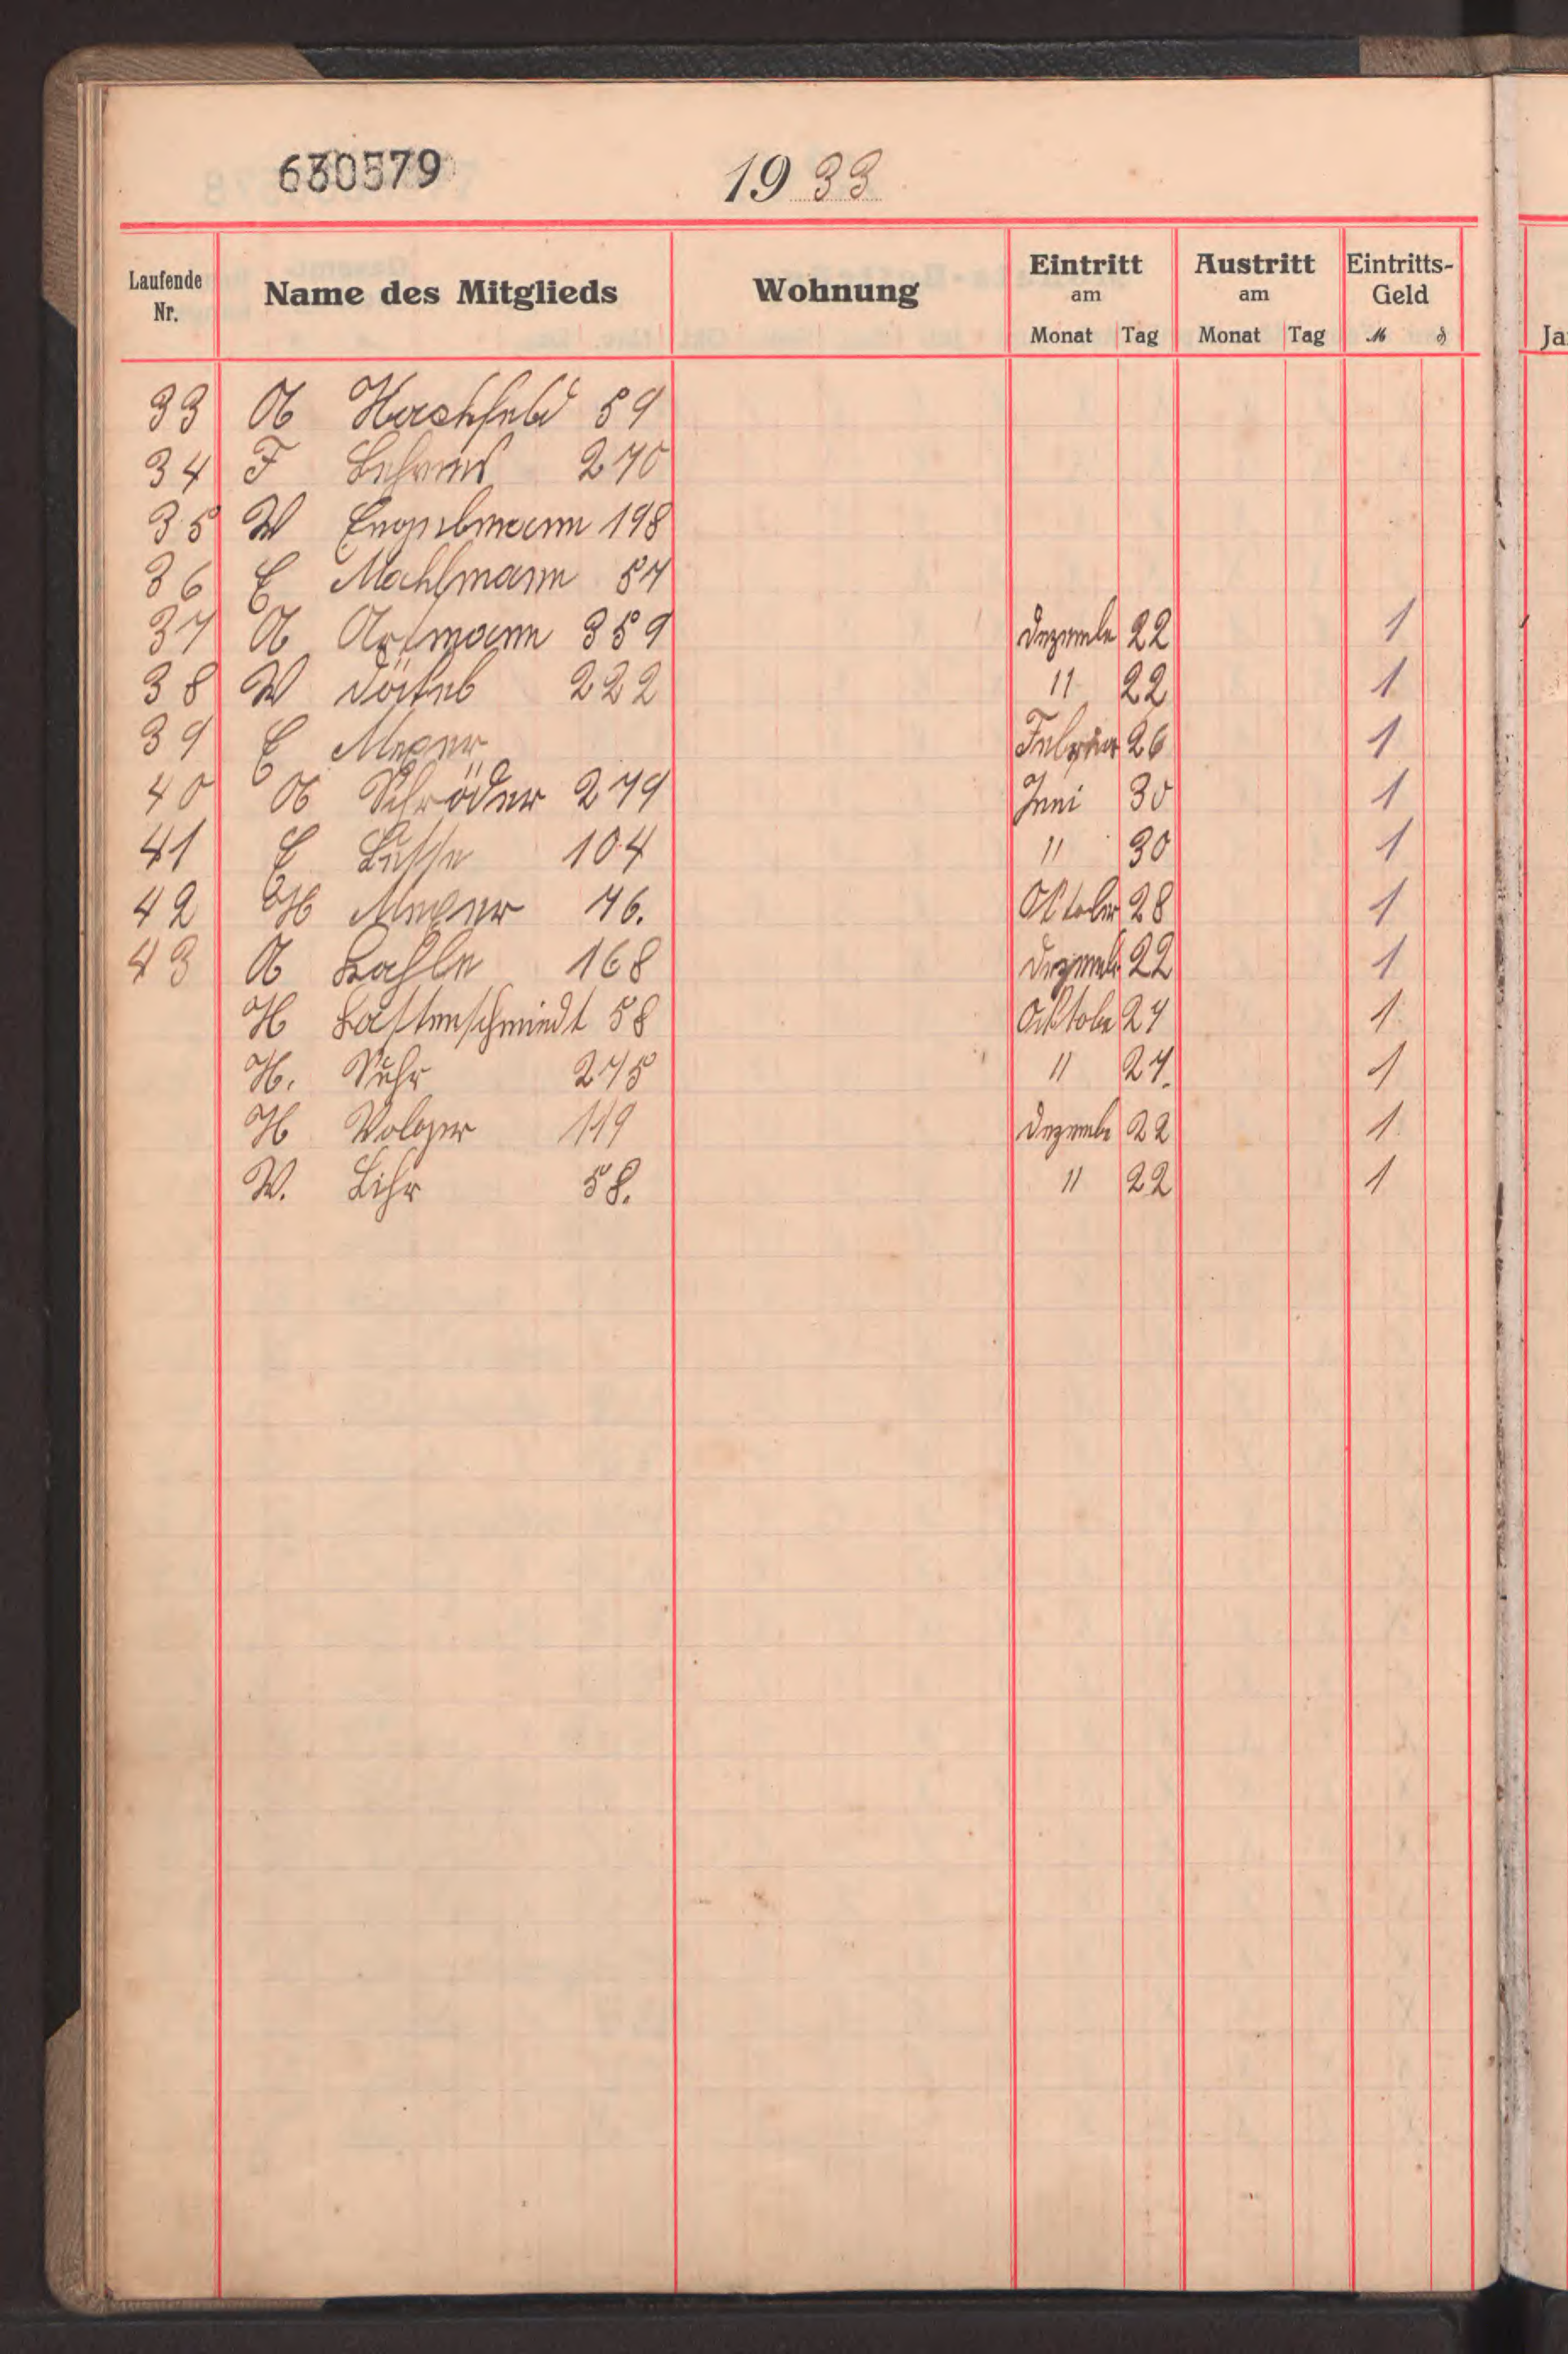 630579
1933
Laufende Nr. Name des Mitglieds Wohnung Eintritt am Monat Tag Austritt am Monat Tag Eintritts-Geld M ₰
Ja
33 A Herschfeld 59
34 F Behrens 270
35 W Engelmann 198
36 E Mahlmann 57
37 A Axmann 359 Dezembe 22 1
38 W 222 " 22 1
39 E Meyer Februar 26 1
40 A Schröder 279 Juni 30 1
41 E Busse 104 " 30 1
42 H Meyer 76. Oktober 28 1
43 A Kahle 168 Dezemb 22 1
H Kastenschmiedt 58 Oktobe 27 1
H. Suhr 275 " 27. 1
H Volger 119 Dezembe 22 1
W. Lihr 58. " 22 1